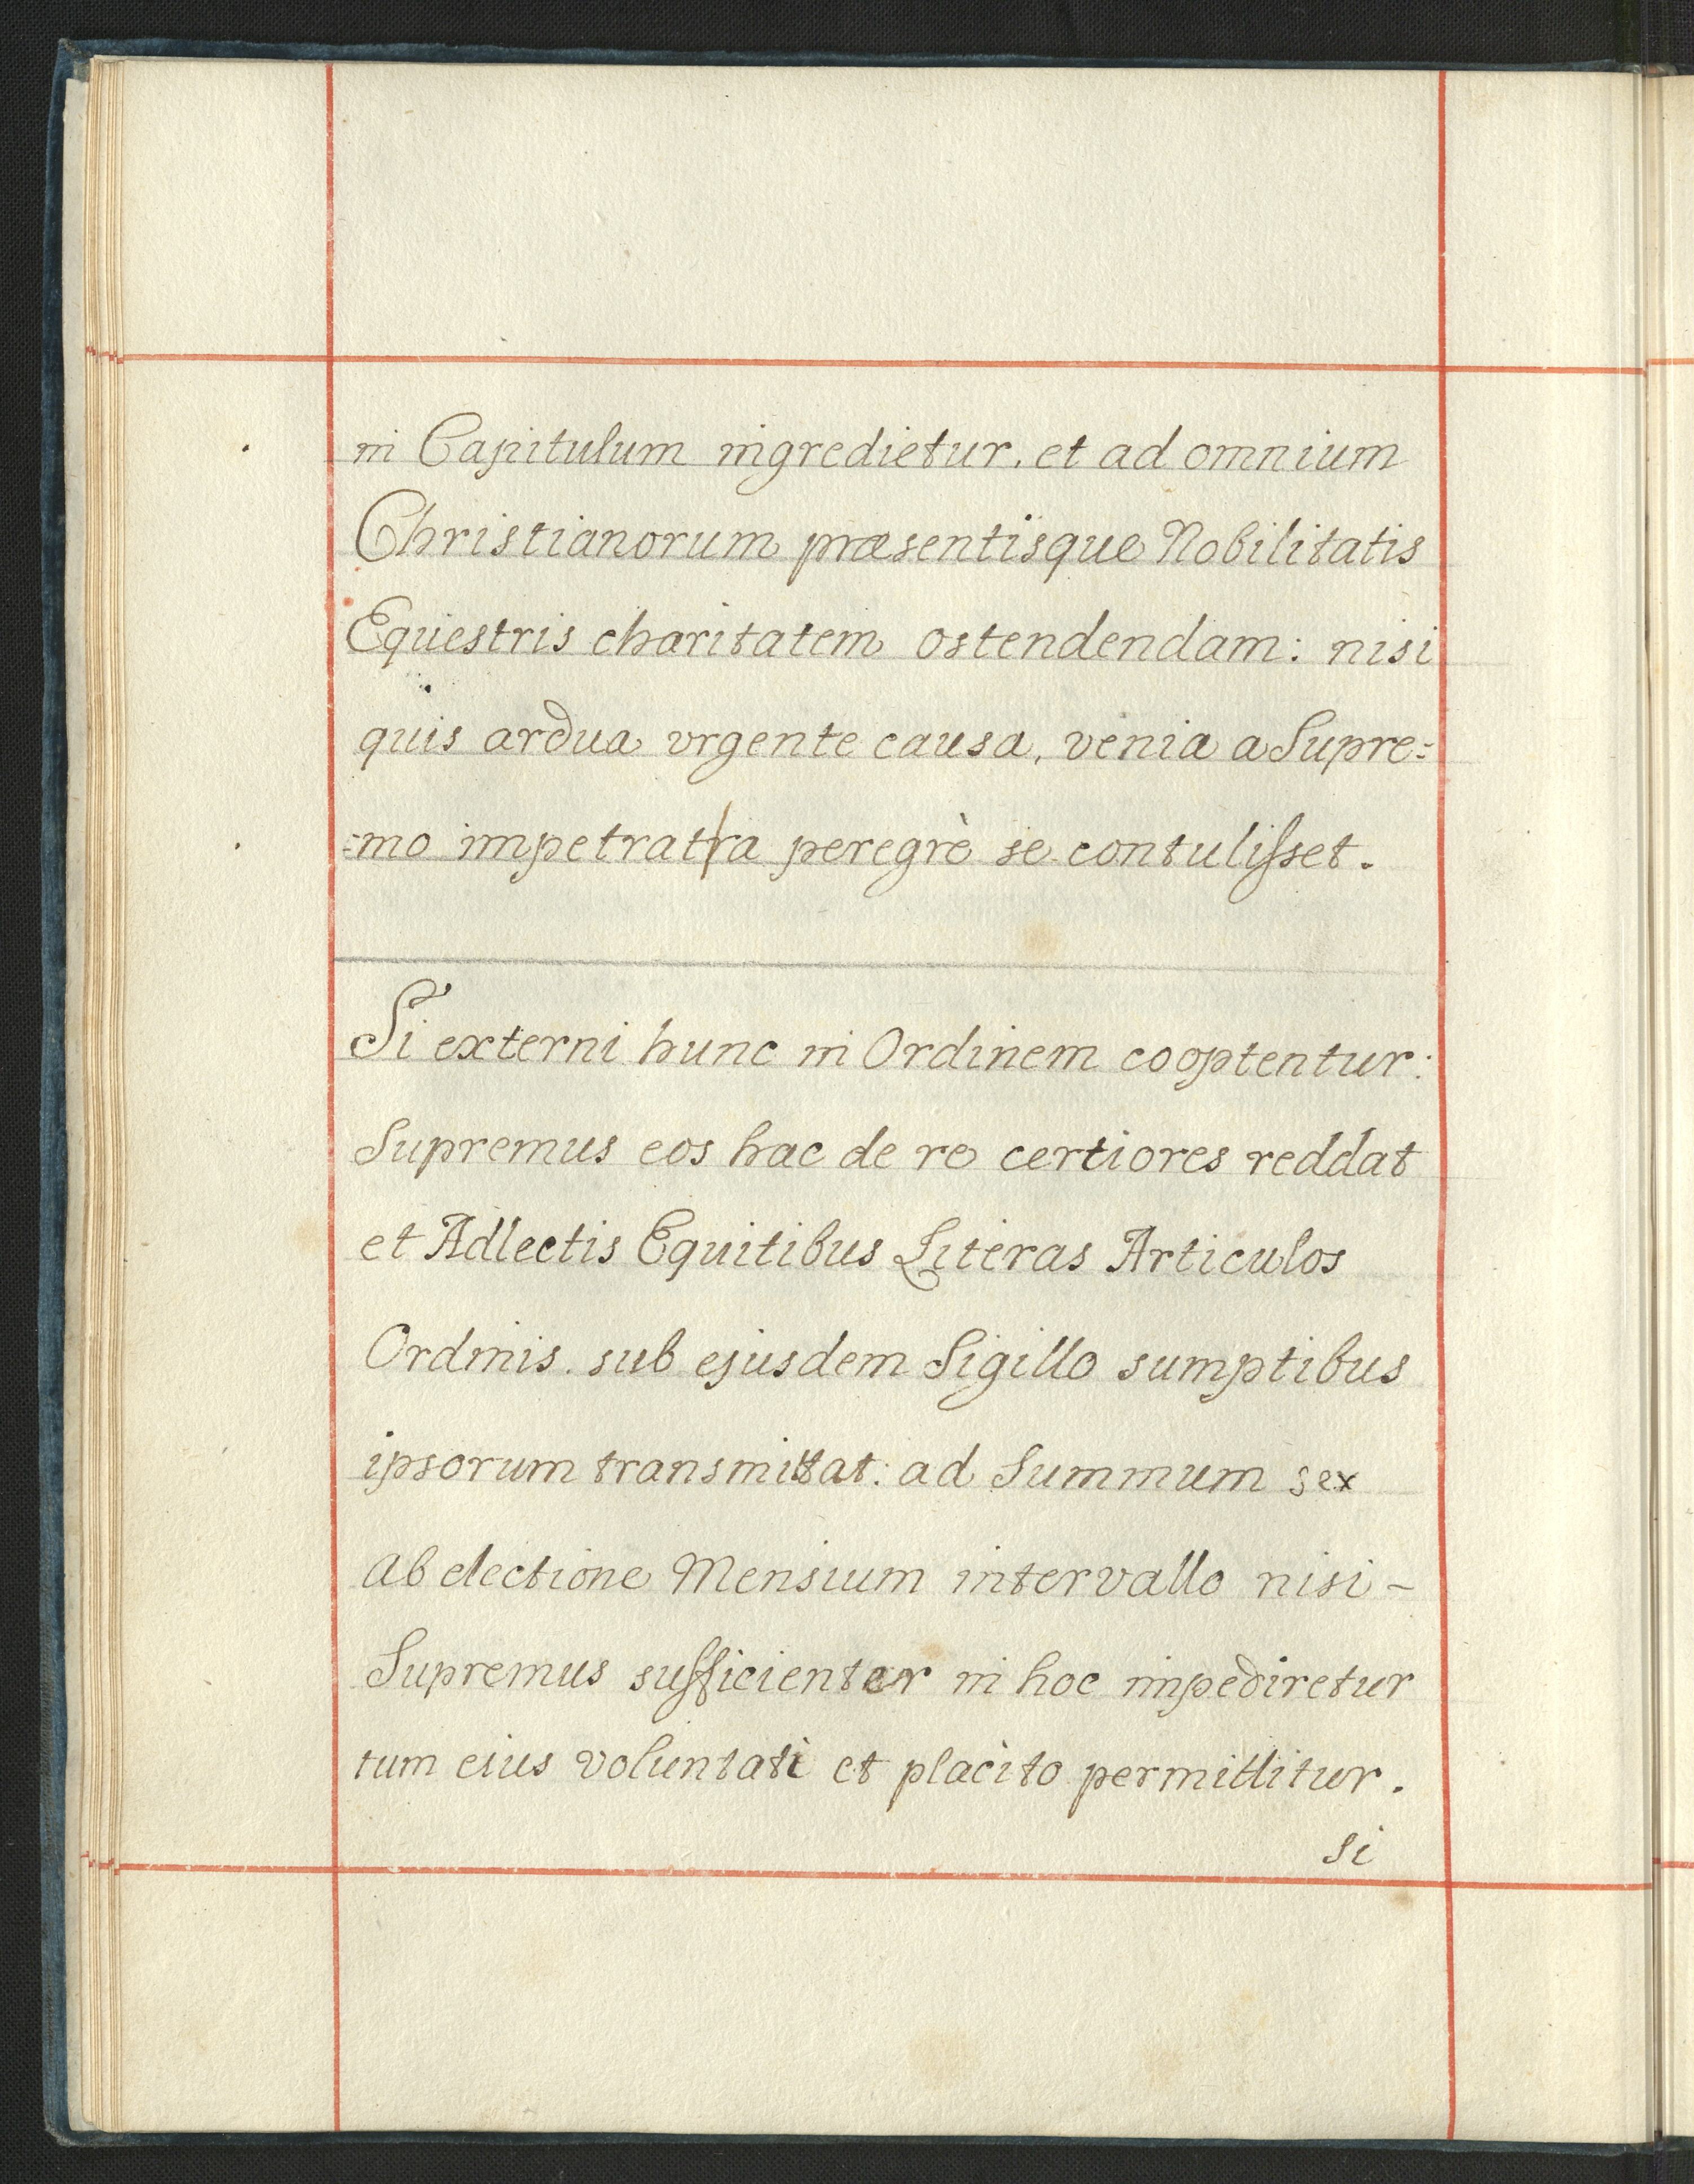 in Capitulum ingredietur. et ad omnium
Christianorum præsentisque Nobilitatis
Equestris charitatem ostendendam: nisi
quis ardua vrgente causa, venia a Supre=
=mo impetrata peregrè se contulisset.
Si externi hunc in Ordinem cooptentur:
Supremus eos hac de re certiores reddat
et Adlectis Equitibus Literas Articulos
Ordinis. sub ejusdem Sigillo sumptibus
ipsorum transmittat: ad Summum sex
ab electione Mensium intervallo nisi -
Supremus sufficienter in hoc impediretur
tum eius voluntati et placito permittitur.
si